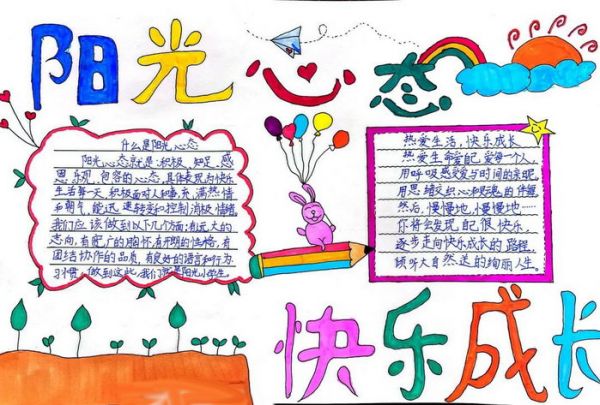 阳光心态
什么是阳光心态
阳光心态就是:积极、知足、感
恩、乐观、包容的心态,具体表现为快乐
生活每一天,积极面对人和事,充满热情
和朝气,能迅速转变和控制消极情绪
我们应该做到以下几个方面:有远大的
志向,有宽广的胸怀,有开朗的性格,有
团结协作的品质,有良好的语言和行为
习惯,做到这些,我们就是阳光小学生。
热爱生活,快乐成长
热爱生命,爱自己,爱每一个人,
用呼吸感受爱与时间的亲昵,
用思绪交织心和灵魂的伴侣
然后,慢慢地,慢慢地……
你将会发现自己很快乐,
逐步走向快乐成长的路程,
倾听大自然送的绚丽人生。
快乐成长